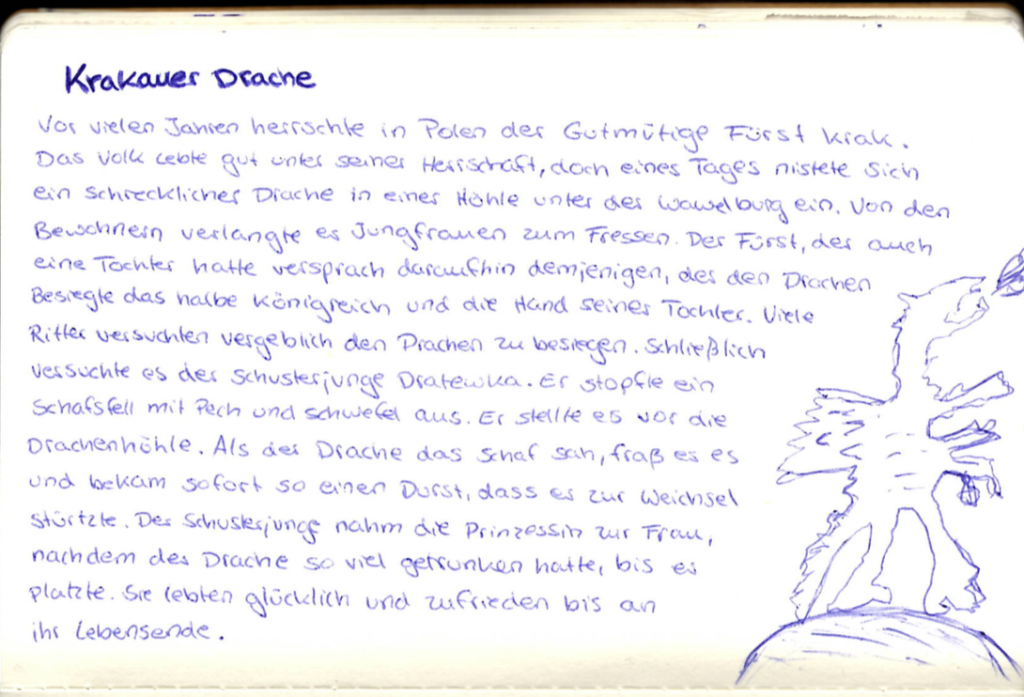 Krakauer Drache
Vor vielen Jahren herrschte in Polen der Gutmütige Fürst Krak.
Das Volk lebte gut unter seiner Herrschaft, doch eines Tages nistete sich
ein schrecklicher Drache in einer Höhle unter der Wawelburg ein. Von den
Bewohnern verlangte er Jungfrauen zum Fressen. Der Fürst, der auch
eine Tochter hatte versprach daraufhin demjenigen, der den Drachen
Besiegte das halbe Königreich und die Hand seiner Tochter. Viele
Ritter versuchten vergeblich den Drachen zu besiegen. Schließlich
versuchte es der Schusterjunge Dratewka. Er stopfte ein
Schafsfell mit Pech und Schwefel aus. Er stellte es vor die
Drachenhöhle. Als der Drache das Schaf sah, fraß er es
und bekam sofort so einen Durst, dass er zur Weichsel
stürtzte. Der Schusterjunge nahm die Prinzessin zur Frau,
nachdem der Drache so viel getrunken hatte, bis er
platzte. Sie lebten glücklich und zufrieden bis an
ihr Lebensende.